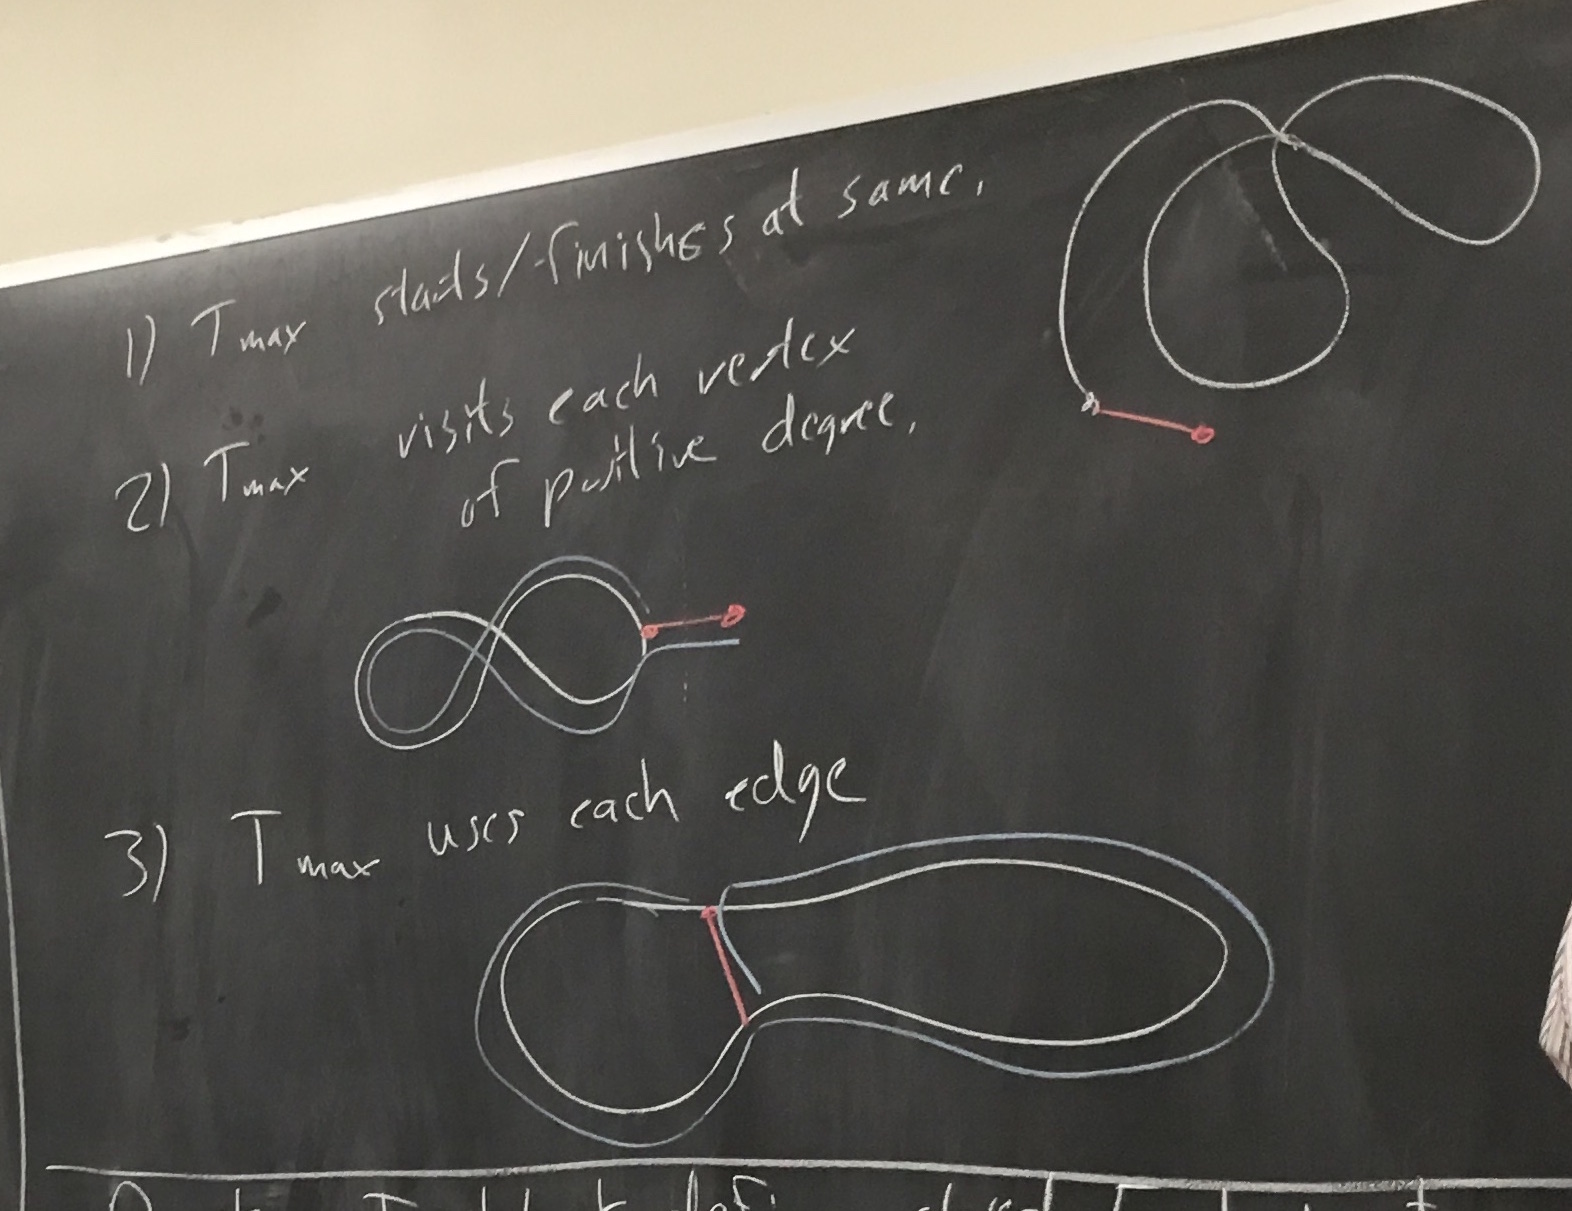 1) Tmax starts/finishes at same.
2) Tmax visits each vertex
of positive degree.
3) Tmax uses each edge